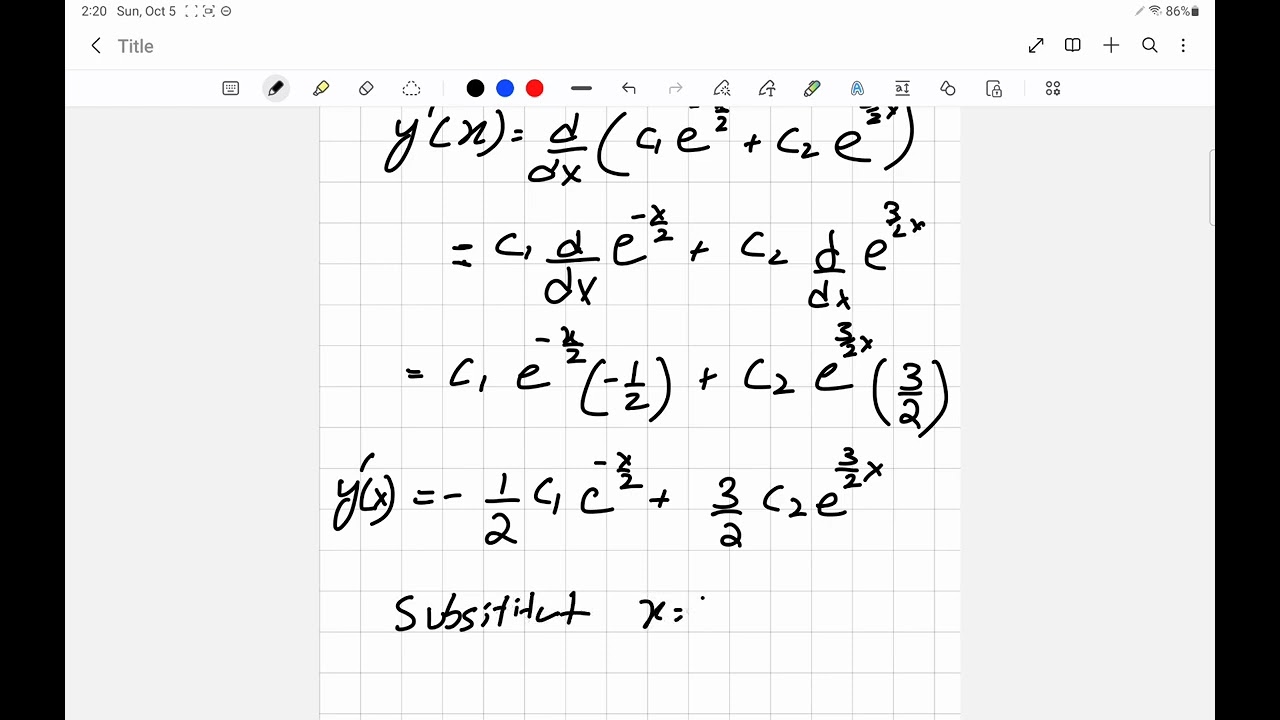 2:20 Sun, Oct 5 86%
Title
y'(x) = d/dx (c₁ e^(-x/2) + c₂ e^(3/2 x))
= c₁ d/dx e^(-x/2) + c₂ d/dx e^(3/2 x)
= c₁ e^(-x/2) (-1/2) + c₂ e^(3/2 x) (3/2)
y'(x) = - 1/2 c₁ e^(-x/2) + 3/2 c₂ e^(3/2 x)
Substitut x =